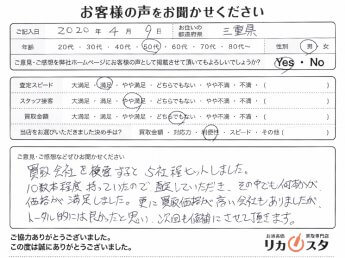 お客様の声をお聞かせください
ご記入日 2020年 4月 9日 お住いの都道府県 三重県
年齢 20代・30代・40代・50代・60代・70代・80代〜 性別 男・女
ご意見・ご感想を弊社ホームページにお客様の声として掲載させて頂いてもよろしいでしょうか? Yes・No
査定スピード 大満足・満足・やや満足・どちらでもない・やや不満・不満・( )
スタッフ接客 大満足・満足・やや満足・どちらでもない・やや不満・不満・( )
買取金額 大満足・満足・やや満足・どちらでもない・やや不満・不満・( )
当店をお選びいただきました決め手は? 買取金額・対応力・利便性・スピード・その他( )
ご意見・ご感想などぜひお聞かせください
買取会社を検索すると5社程ヒットしました。
10数本程度持っていたので査定していただき、その中でも何本かが
価格が満足しました。更に買取価格が高い会社もありましたが、
トータル的には良かったと思い、次回も依頼にさせて頂きます。
ご協力ありがとうございました。
この度は誠にありがとうございました。
お酒高価買取専門店
リカスタ